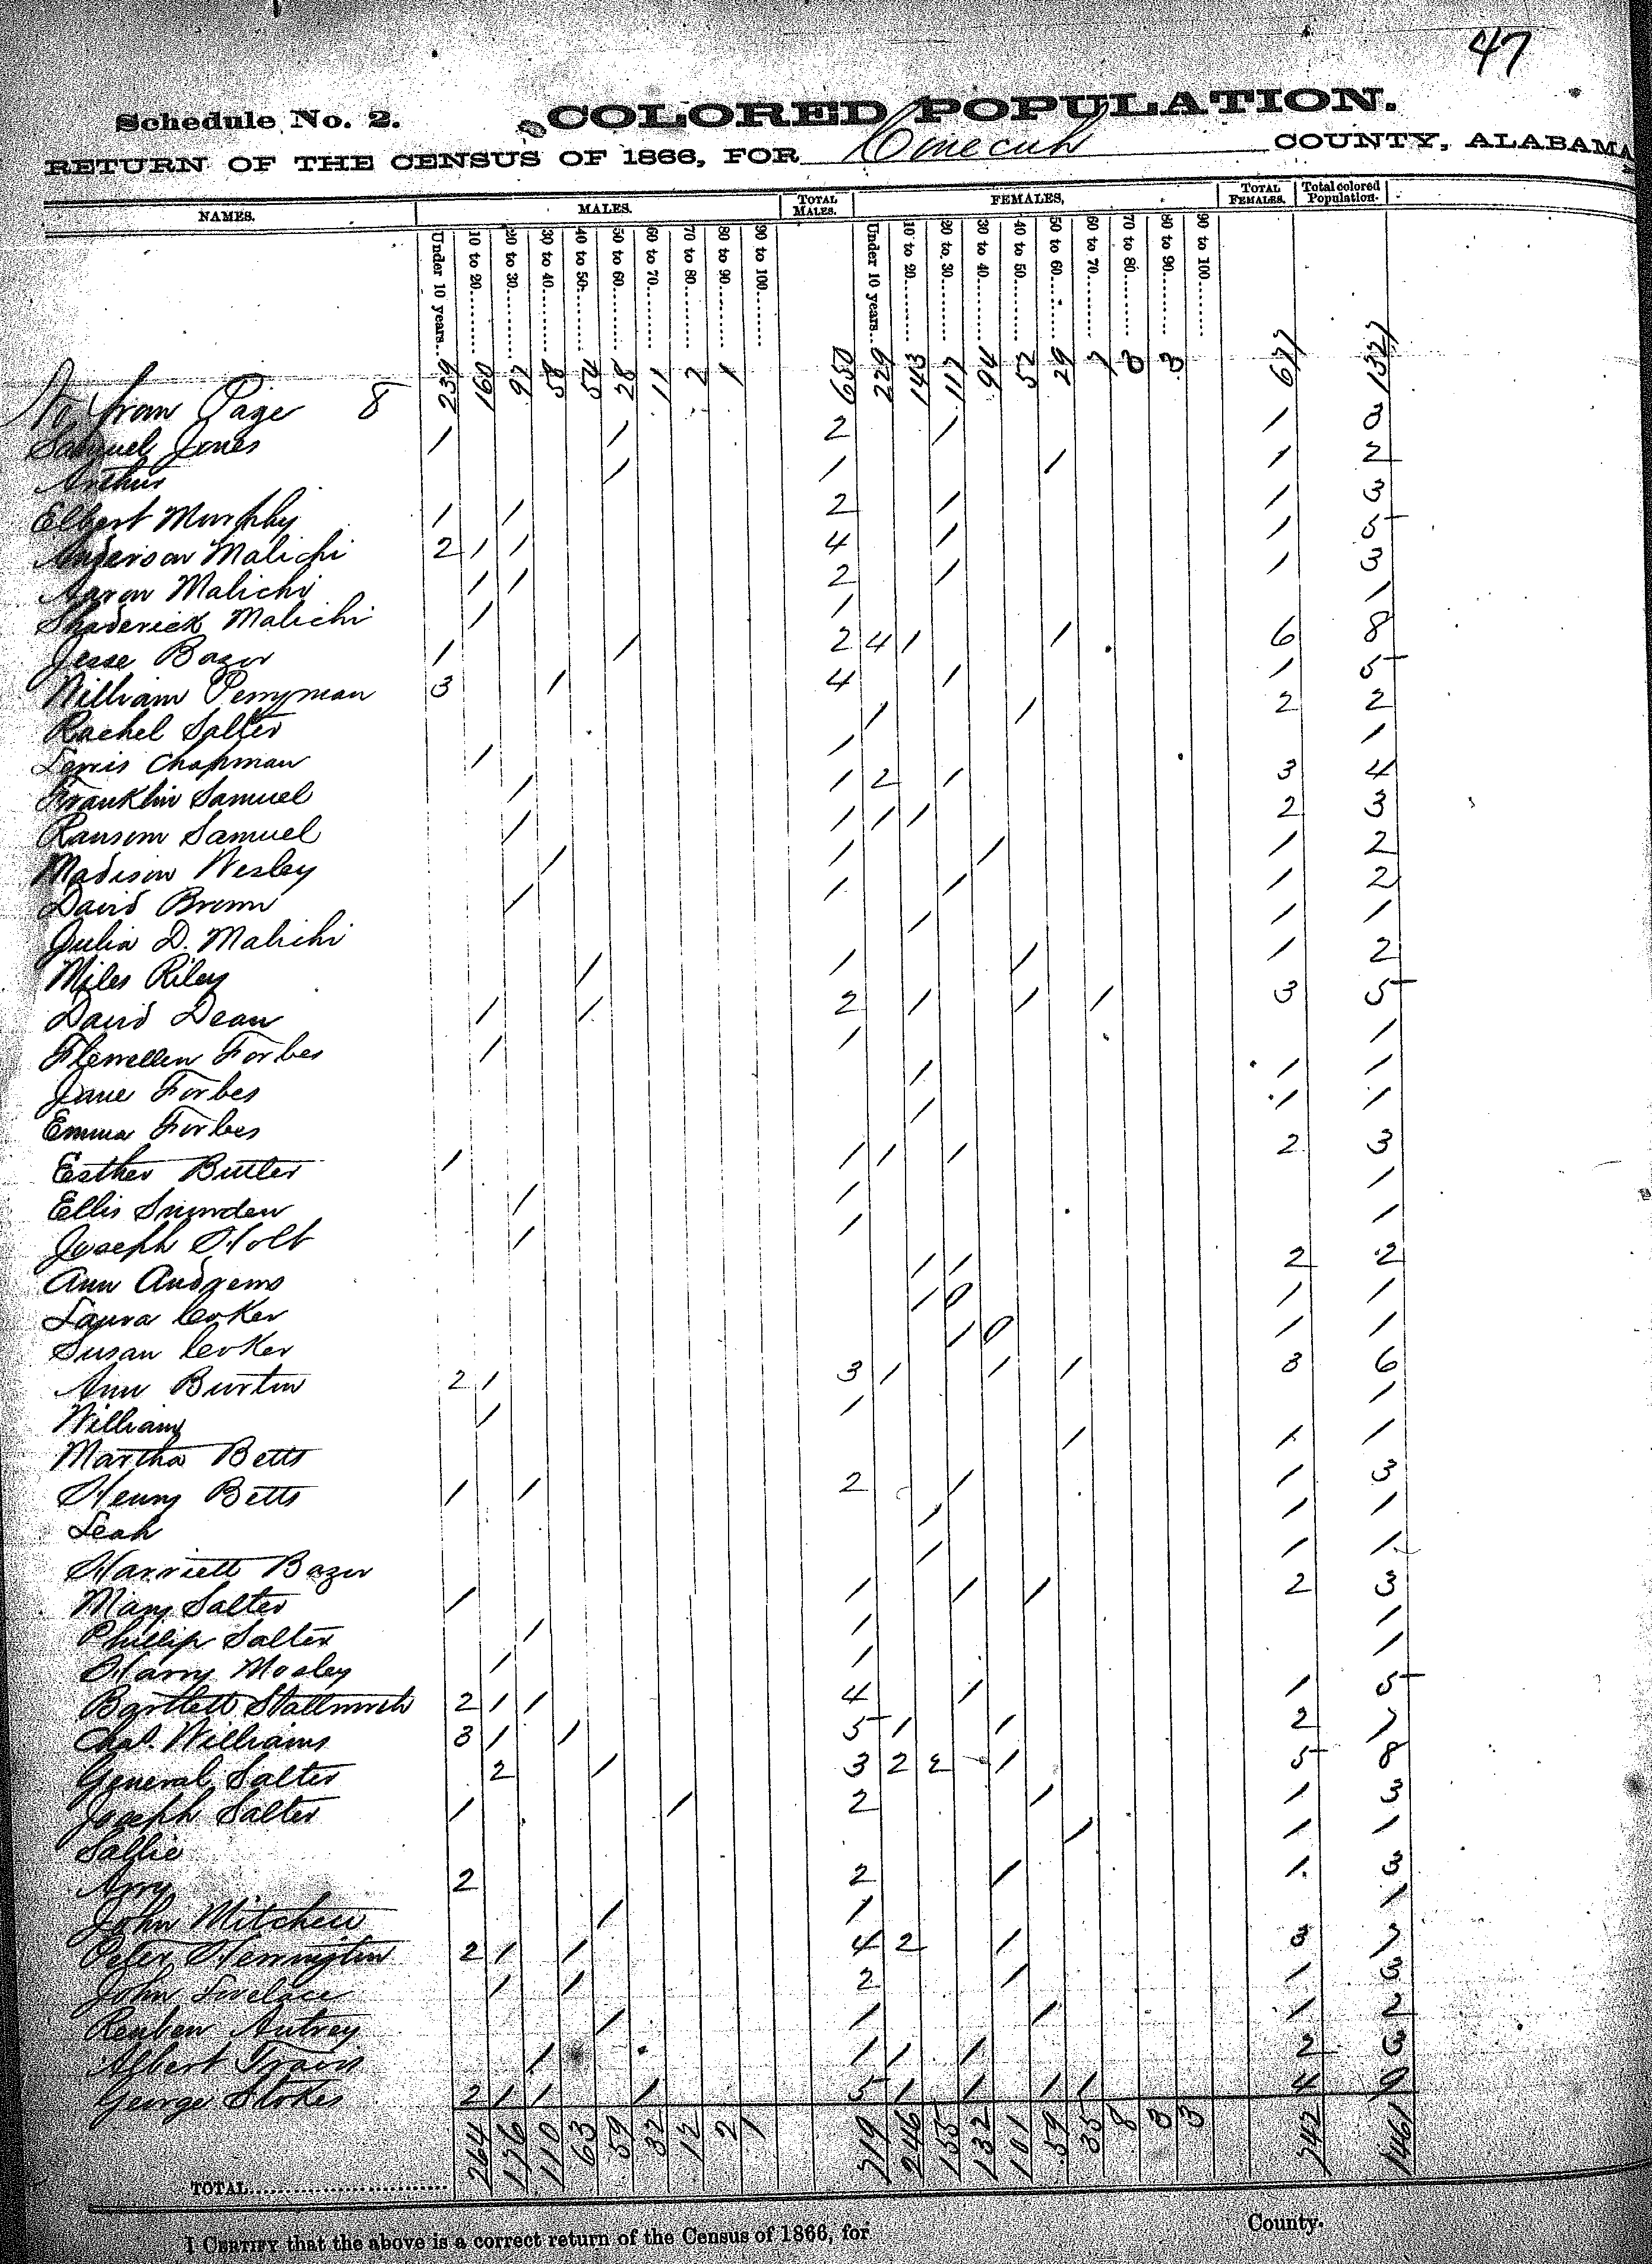 47
Schedule No. 2. COLORED POPULATION.
RETURN OF THE CENSUS OF 1866, FOR Conecuh COUNTY, ALABAMA
NAMES. MALES. TOTAL MALES. FEMALES, TOTAL FEMALES. Total colored Population.
Under 10 years... 10 to 20... 20 to 30... 30 to 40... 40 to 50... 50 to 60... 60 to 70... 70 to 80... 80 to 90... 90 to 100... Under 10 years... 10 to 20... 20 to 30... 30 to 40... 40 to 50... 50 to 60... 60 to 70... 70 to 80... 80 to 90... 90 to 100...
from Page 8 239 160 97 58 54 28 11 2 1 650 229 143 117 94 52 29 7 3 3 677 1327
Samuel Jones 1 1 2 1 1 3
Arthur 1 1 1 1 2
Elbert Murphy 1 1 2 1 1 3
Anderson Malichi 2 1 1 4 1 1 5
Aaron Malichi 1 1 2 1 1 3
Shaderick Malichi 1 1 1
Jesse Bazor 1 1 2 4 1 1 6 8
William Perryman 3 1 4 1 1 5
Rachel Salter 1 1 2 2
Lewis Chapman 1 1 1
Franklin Samuel 1 1 2 1 3 4
Ransom Samuel 1 1 1 1 2 3
Madison Wesley 1 1 1 1 2
David Brown 1 1 1 1 2
Julia D. Malichi 1 1 1
Miles Riley 1 1 1 1 2
David Dean 1 1 2 1 1 1 3 5
Flewellen Forbes 1 1 1
Jane Forbes 1 1 1
Emma Forbes 1 1 1
Esther Butler 1 1 1 1 2 3
Ellis Snowden 1 1 1
Joseph Holt 1 1 1
Ann Andrews 1 1 2 2
Laura Coker 1 0 1 1
Susan Coker 1 0 1 1
Ann Burton 2 1 3 1 1 1 3 6
William 1 1 1
Martha Betts 1 1 1
Henry Betts 1 1 2 1 1 3
Leah 1 1 1
Harriett Bazor 1 1 1
Mary Salter 1 1 1 1 2 3
Phillip Salter 1 1 1
Harry Mosley 1 1 1
Bartlett Stallworth 2 1 1 4 1 1 5
Chas. Williams 3 1 1 5 1 1 2 7
General Salter 2 1 3 2 2 1 5 8
Joseph Salter 1 1 2 1 1 3
Sallie 1 1 1
Arry 2 2 1 1 3
John Mitchell 1 1 1
Peter Herrington 2 1 1 4 2 1 3 7
John Lovelace 1 1 2 1 1 3
Reuben Autrey 1 1 1 1 2
Albert Travis 1 1 1 1 2 3
George Stokes 2 1 1 1 5 1 1 1 1 4 9
TOTAL... 264 176 110 63 59 32 12 2 1 719 246 155 132 101 59 35 8 3 3 742 1461
I CERTIFY that the above is a correct return of the Census of 1866, for County.